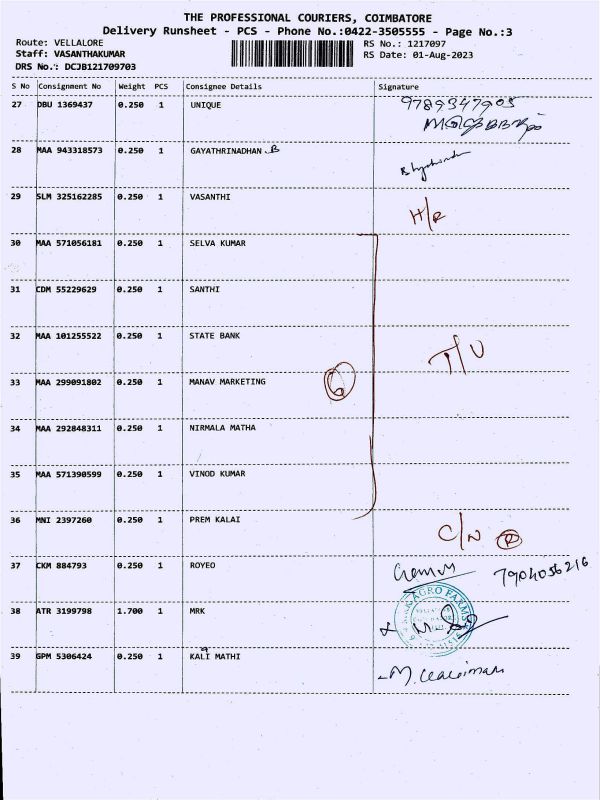 THE PROFESSIONAL COURIERS, COIMBATORE
Delivery Runsheet - PCS - Phone No.:0422-3505555 - Page No.:3
Route: VELLALORE RS No.: 1217097
Staff: VASANTHAKUMAR RS Date: 01-Aug-2023
DRS No.: DCJB121709703
S No Consignment No Weight PCS Consignee Details Signature
27 DBU 1369437 0.250 1 UNIQUE 9789347905
28 MAA 943318573 0.250 1 GAYATHRINADHAN .B
29 SLM 325162285 0.250 1 VASANTHI H/R
30 MAA 571056181 0.250 1 SELVA KUMAR
31 CDM 55229629 0.250 1 SANTHI
32 MAA 101255522 0.250 1 STATE BANK T/U
33 MAA 299091802 0.250 1 MANAV MARKETING 6
34 MAA 292848311 0.250 1 NIRMALA MATHA
35 MAA 571390599 0.250 1 VINOD KUMAR
36 MNI 2397260 0.250 1 PREM KALAI C/N R
37 CKM 884793 0.250 1 ROYEO 7904056216
38 ATR 3199798 1.700 1 MRK AGRO FARMS
39 GPM 5306424 0.250 1 KALI MATHI